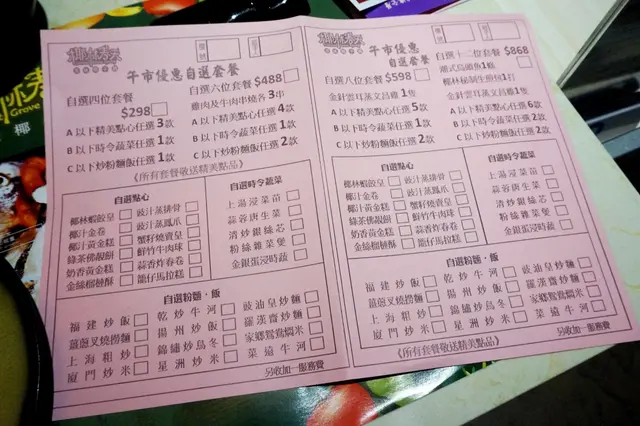 午市優惠自選套餐
自選四位套餐
$298
A 以下精美點心任選3款
B 以下時令蔬菜任選1款
C 以下炒粉麵飯任選1款
自選六位套餐 $488
雞肉及牛肉串燒各3串
A 以下精美點心任選4款
B 以下時令蔬菜任選1款
C 以下炒粉麵飯任選2款
《所有套餐敬送精美點品》
自選點心
椰林蝦餃皇
椰汁金卷
椰汁黃金糕
綠茶佛靚餅
奶香黃金糕
金絲榴槤酥
豉汁蒸排骨
豉汁蒸鳳爪
蟹籽燒賣皇
鮮竹牛肉球
蒜香炸春卷
籠仔馬拉糕
自選時令蔬菜
上湯浸菜苗
蒜蓉唐生菜
清炒銀絲芯
粉絲雜菜煲
金銀蛋浸時蔬
自選粉麵·飯
福建炒飯
薑蔥叉燒撈麵
上海粗炒
廈門炒米
乾炒牛河
揚州炒飯
錦繡炒烏冬
星洲炒米
豉油皇炒麵
羅漢齋炒麵
家鄉鴛鴦燜米
菜遠牛河
另收加一服務費
午市優惠自選套餐
自選八位套餐 $598
金針雲耳蒸文昌雞1隻
A 以下精美點心任選5款
B 以下時令蔬菜任選2款
C 以下炒粉麵飯任選2款
自選十二位套餐 $868
潮式烏頭魚1條
椰林秘制生煎包1打
金針雲耳蒸文昌雞1隻
A 以下精美點心任選6款
B 以下時令蔬菜任選2款
C 以下炒粉麵飯任選2款
自選點心
椰林蝦餃皇
椰汁金卷
椰汁黃金糕
綠茶佛靚餅
奶香黃金糕
金絲榴槤酥
豉汁蒸排骨
豉汁蒸鳳爪
蟹籽燒賣皇
鮮竹牛肉球
蒜香炸春卷
籠仔馬拉糕
自選時令蔬菜
上湯浸菜苗
蒜蓉唐生菜
清炒銀絲芯
粉絲雜菜煲
金銀蛋浸時蔬
自選粉麵·飯
福建炒飯
薑蔥叉燒撈麵
上海粗炒
廈門炒米
乾炒牛河
揚州炒飯
錦繡炒烏冬
星洲炒米
豉油皇炒麵
羅漢齋炒麵
家鄉鴛鴦燜米
菜遠牛河
《所有套餐敬送精美點品》
另收加一服務費
Grove
椰